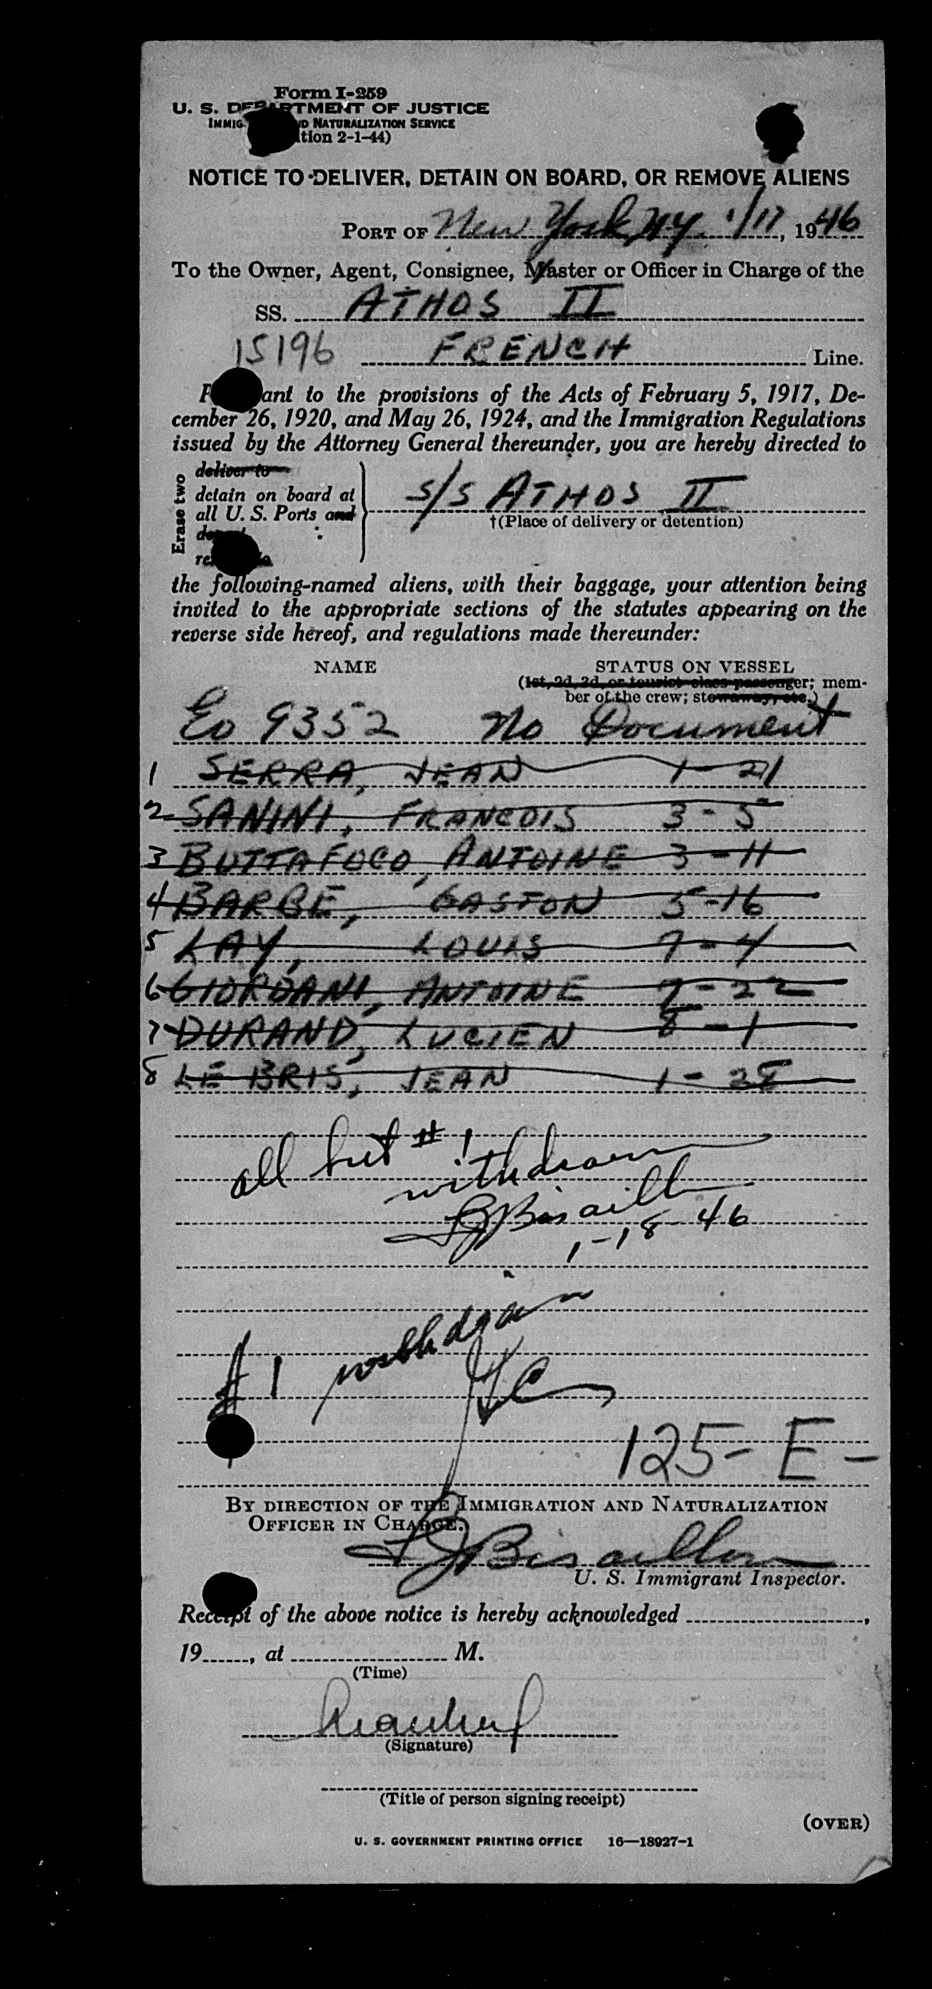 Form I-259
U. S. DEPARTMENT OF JUSTICE
IMMIG ND NATURALIZATION SERVICE
tion 2-1-44)
NOTICE TO DELIVER, DETAIN ON BOARD, OR REMOVE ALIENS
PORT OF New York, NY. 1/17, 1946
To the Owner, Agent, Consignee, Master or Officer in Charge of the
SS. ATHOS II
15196 FRENCH Line.
P ant to the provisions of the Acts of February 5, 1917, De-
cember 26, 1920, and May 26, 1924, and the Immigration Regulations
issued by the Attorney General thereunder, you are hereby directed to
Erase two
deliver to
detain on board at
all U. S. Ports and
S/S ATHOS II
†(Place of delivery or detention)
the following-named aliens, with their baggage, your attention being
invited to the appropriate sections of the statutes appearing on the
reverse side hereof, and regulations made thereunder:
NAME STATUS ON VESSEL
(1st, 2d, 3d, or tourist class passenger; mem-
ber of the crew; stowaway, etc.)
Eo 9352 No Document
1 SERRA, JEAN 1-21
2 SANINI, FRANCOIS 3-5
3 BUTTAFOCO, ANTOINE 3-11
4 BARBE, GASTON 5-16
5 LAY, LOUIS 7-4
6 GIORDANI, ANTOINE 7-22
7 DURAND, LUCIEN 8-1
8 LE BRIS, JEAN 1-28
all but #1
withdrawn
Bisaillon
1-18-46
#1 withdrawn
125-E-
BY DIRECTION OF THE IMMIGRATION AND NATURALIZATION
OFFICER IN CHARGE.
Bisaillon
U. S. Immigrant Inspector.
Receipt of the above notice is hereby acknowledged ,
19 , at M.
(Time)
(Signature)
(Title of person signing receipt)
(OVER)
U. S. GOVERNMENT PRINTING OFFICE 16—18927-1